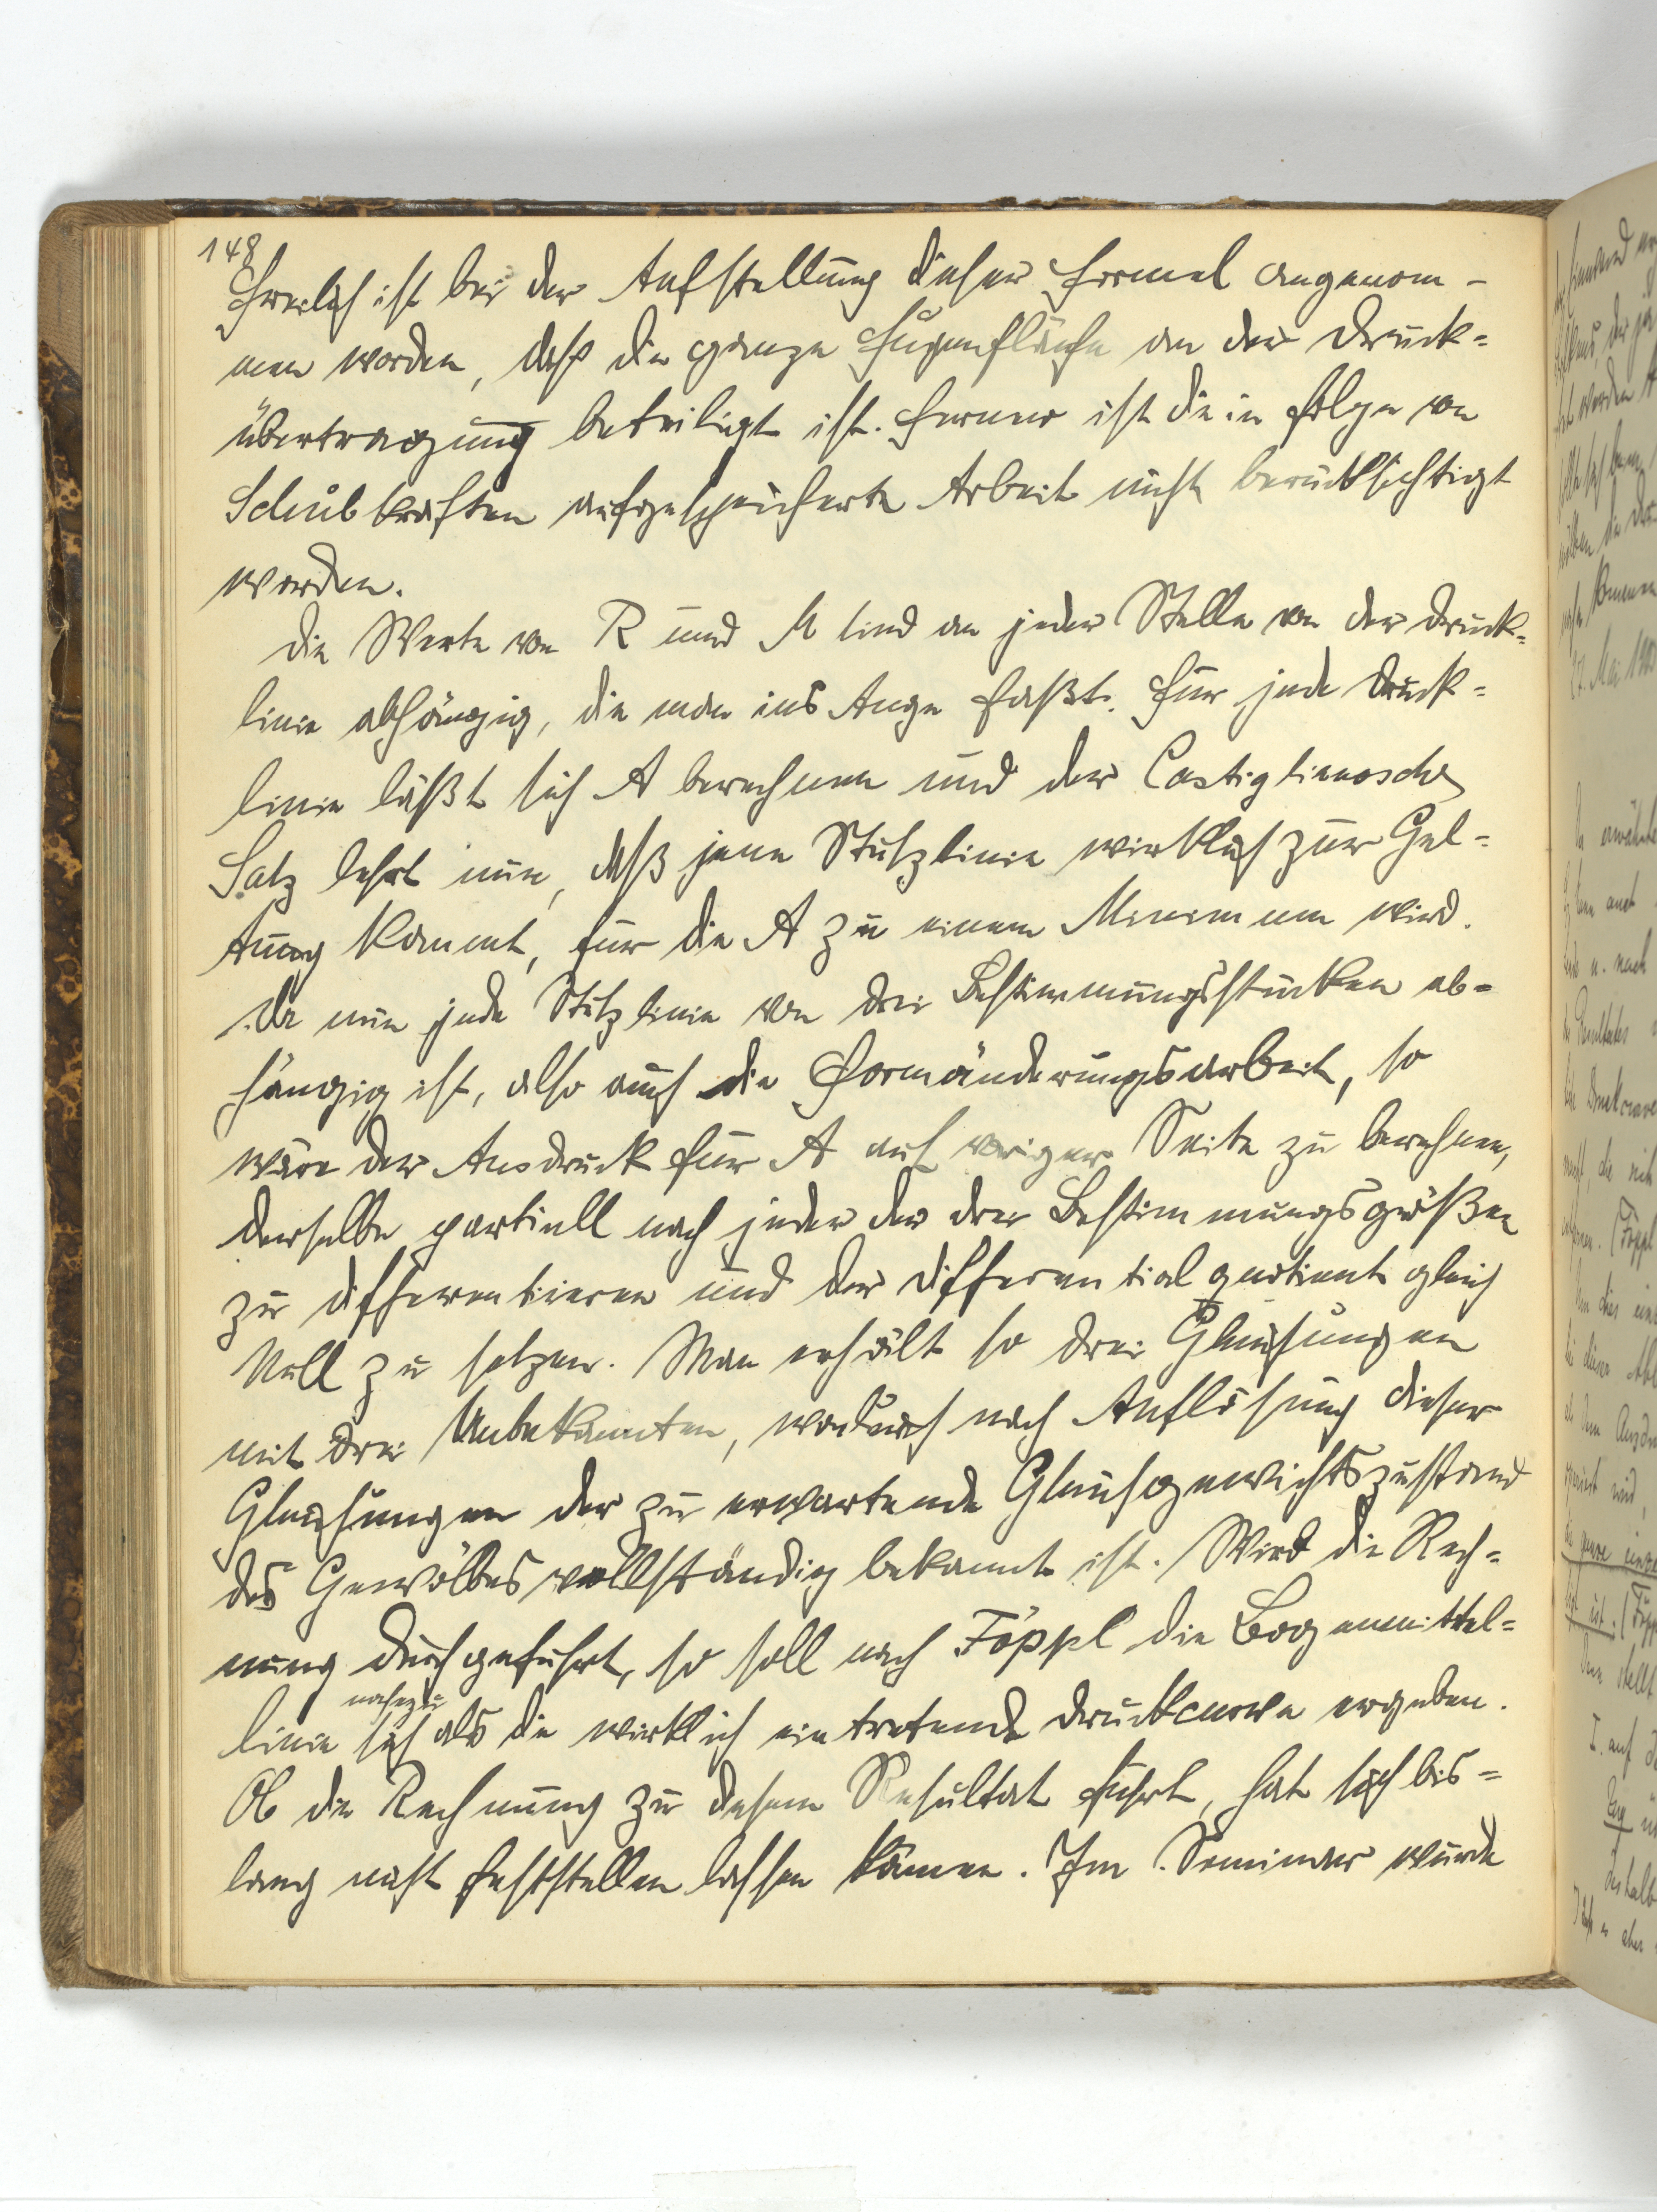 148
Freilich ist bei der Aufstellung dieser Formel angenom-
men worden, daß die ganze Fugenfläche an der Druck=
übertragung beteiligt ist. Ferner ist die in folge von
Schubkräften aufgespeicherte Arbeit nicht berücksichtigt
worden.
Die Werte von R und M sind an jeder Stelle von der Druck=
linie abhängig, die man ins Auge faßt. Für jede Druck=
linie läßt sich A berechnen und der Castiglianosche
Satz lehrt nun, daß jene Stützlinie wirklich zur Gel=
tung kommt, für die A zu einem Minimum wird.
Da nun jede Stützlinie von drei Bestimmungsstücken ab=
hängig ist, also auch die Formänderungsarbeit, so
wäre der Ausdruck für A auf voriger Seite zu berechnen,
derselbe partiell nach jeder der drei Bestimmungsgrößen
zu differentieren und der Differentialquotient gleich
Null zu setzen. Man erhält so drei Gleichungen
mit drei Unbekannten, wodurch nach Auflösung dieser
Gleichungen der zu erwartende Gleichgewichtszustand
des Gewölbes vollständig bekannt ist. Wird die Rech=
nung durchgeführt, so soll nach Föppl die Bogenmittel=
nahezu
linie sich als die wirklich eintretende Druckcurve ergeben.
Ob die Rechnung zu diesem Resultat führt, hat sich bis=
lang nicht feststellen lassen können. Im Seminar wurde